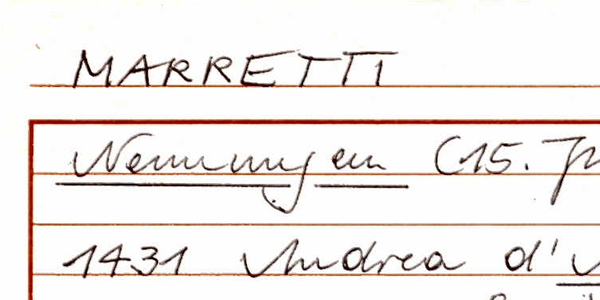 MARRETTI
Nennungen (15. J
1431 Andrea d'